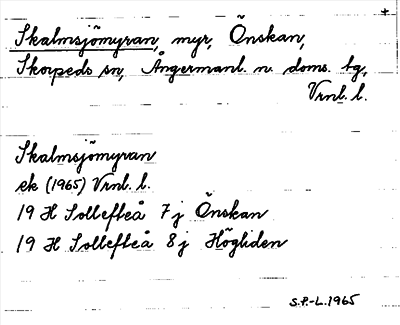 Skalmsjömyran, myr, Önskan,
Skorpeds sn, Ångermanl. n. doms. tg,
Vrnl. l.
Skalmsjömyran
ek (1965) Vrnl. l.
19 H Sollefteå 7 j Önskan
19 H Sollefteå 8 j Högliden
S.P.-L. 1965